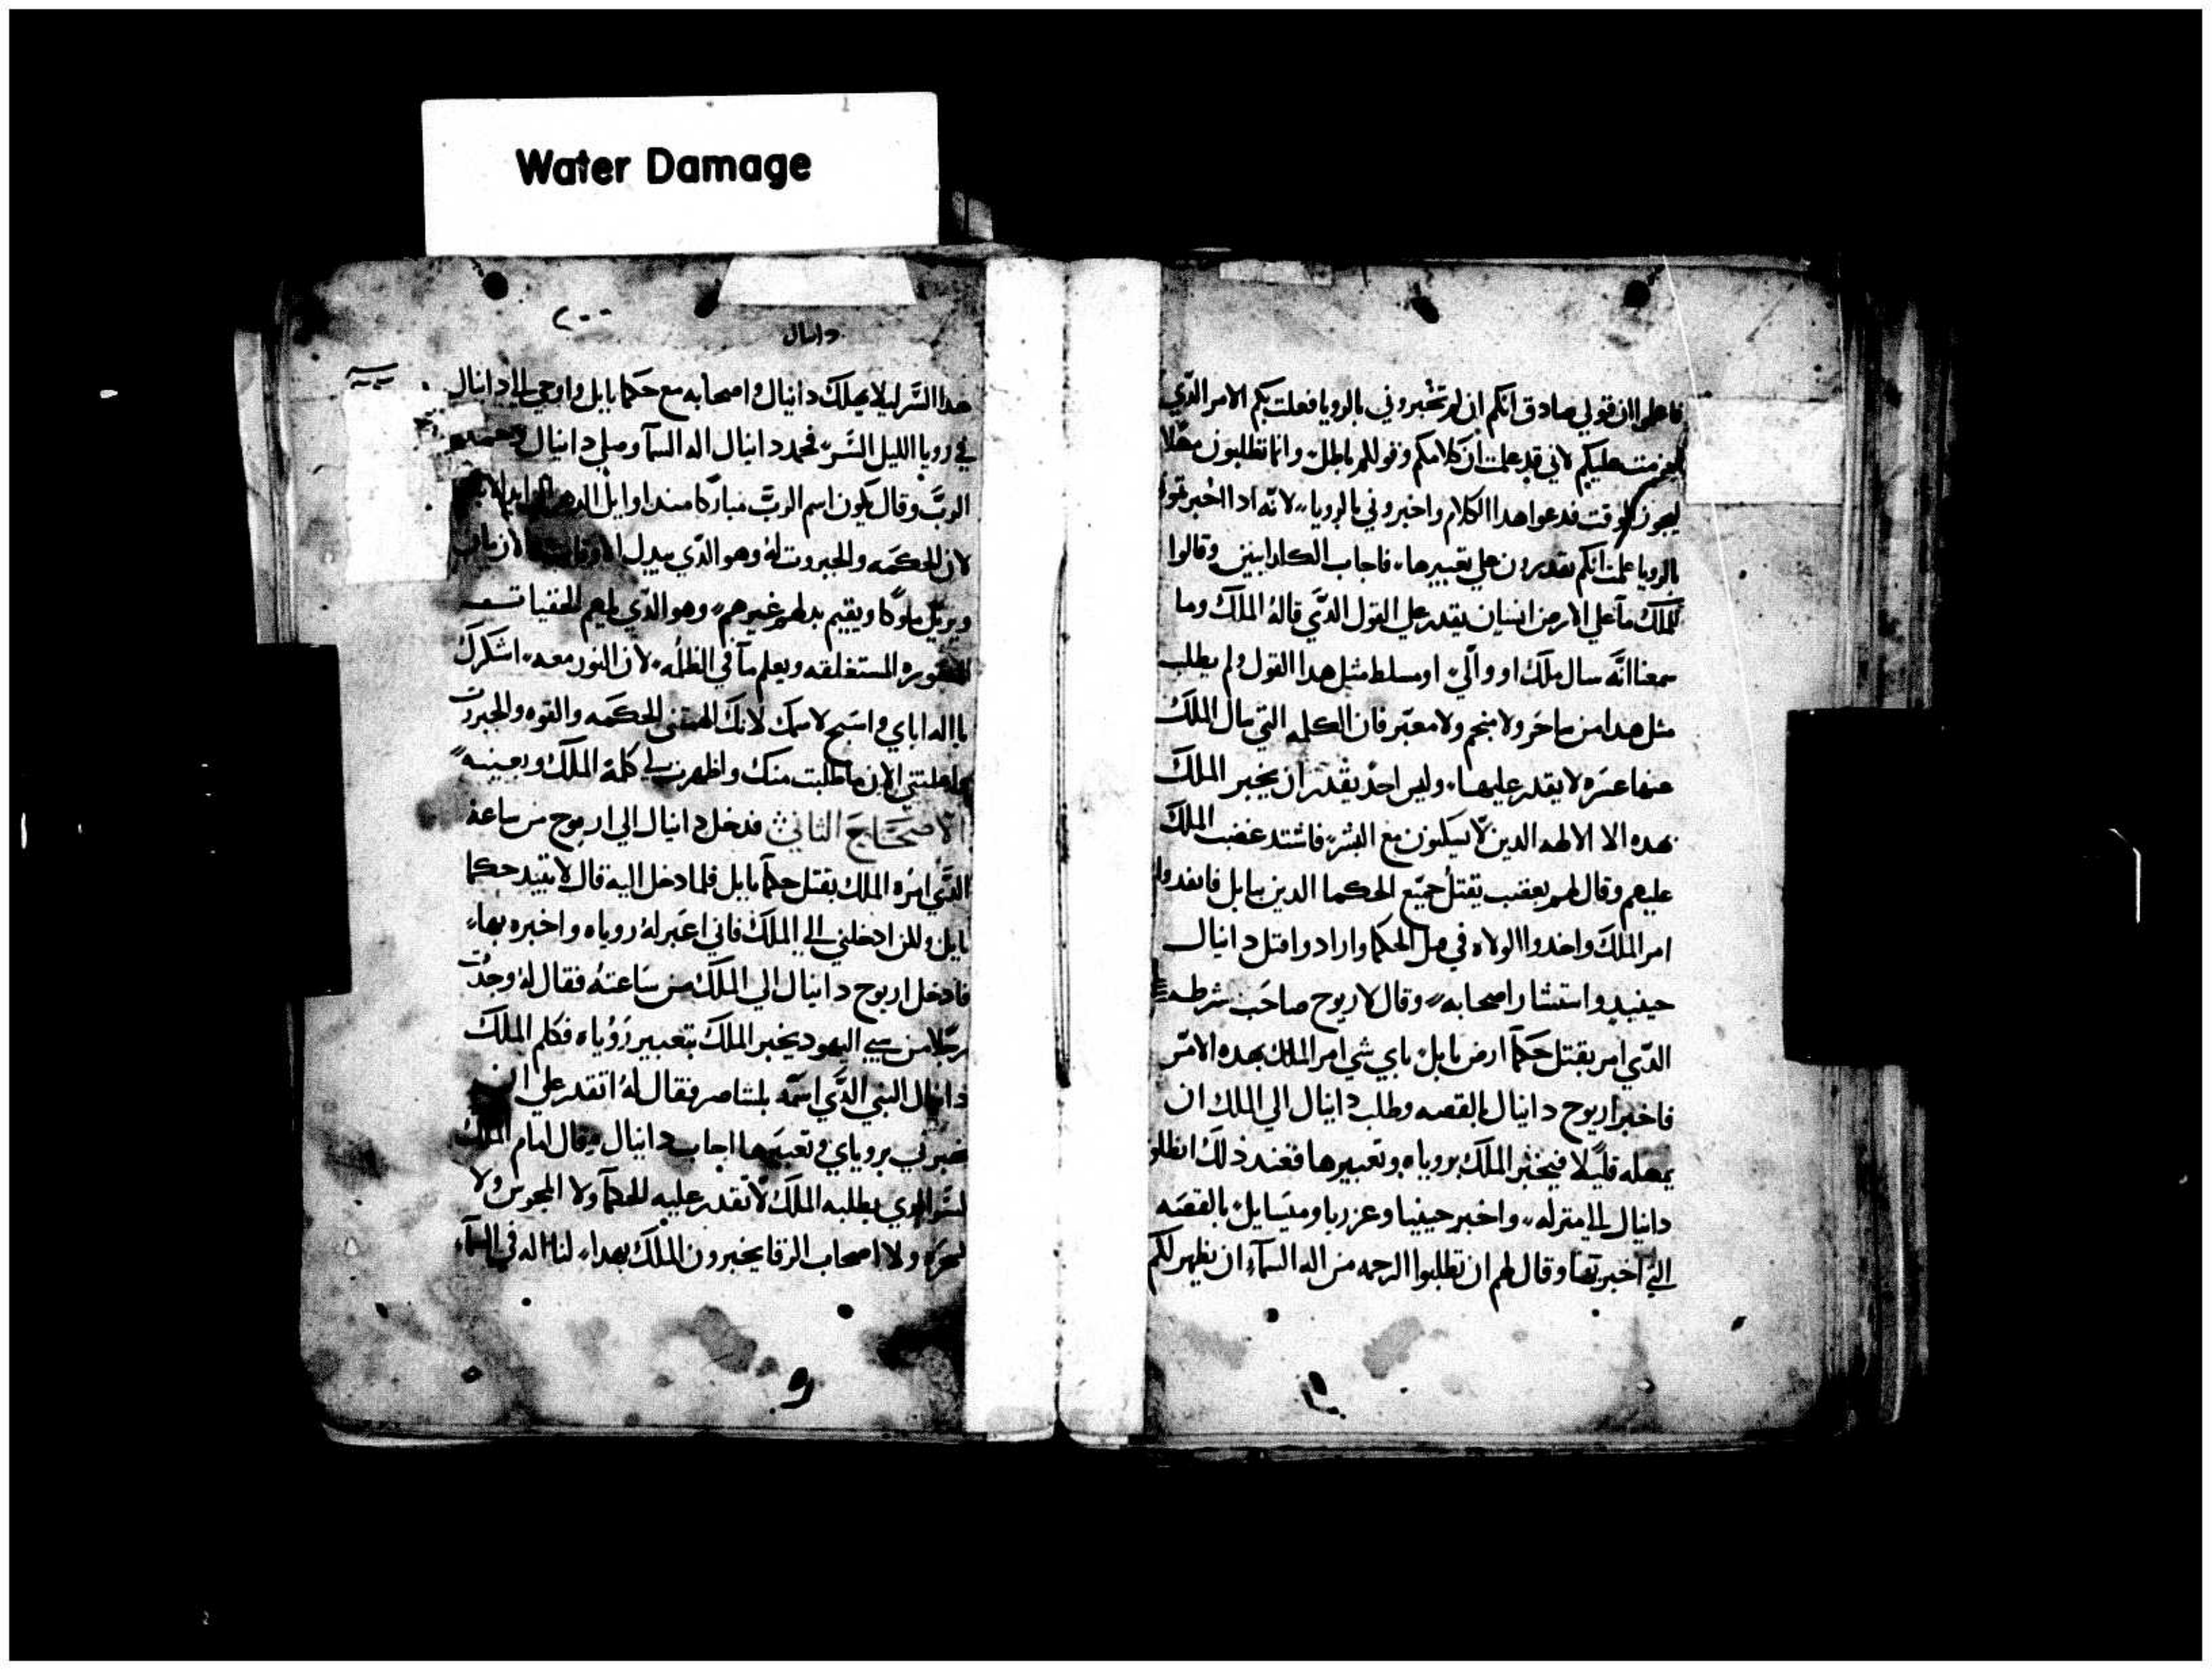 Water Damage
فاعلموا ان قولي صادق انكم ان لم تخبروني بالرويا فعلت بكم الامر الدي
عزمت عليكم لاني قد علمت ان كلامكم وقولكم باطل وانما تطلبون مهلا
ليجوز الوقت فدعوا هدا الكلام واخبروني بالرويا لانه ادا اخبرتموني
بالرويا علمت انكم تقدرون علي تعبيرها فاجاب الكلدانيين وقالوا
للملك ما علي الارض انسان يقدر علي القول الدي قاله الملك وما
سمعنا انه سال ملك او والي او مسلط مثل هدا القول ولم يطلب
مثل هدا من ساحر ولا منجم ولا معبر فان الكلمه التي سال الملك
عنها عسره لا يقدر عليها وليس احد يقدر ان يخبر الملك
بهده الا الالهه الدين لا يسكنون مع البشر فاشتد غضب الملك
عليهم وقال لهم بغضب يقتل جميع الحكما الدين ببابل فانفدوا
امر الملك واخدوا الولاه في قتل الحكما وارادوا قتل دانيال
حينيد واستشار اصحابه وقال لاريوح صاحب شرطه
الدي امر بقتل حكما ارض بابل باي شي امر الملك بهده الامر
فاخبر اريوح دانيال بالقصه وطلب دانيال الي الملك ان
يمهله قليلا فيخبر الملك بروياه وتعبيرها فعند ذلك انطلق
دانيال الي منزله واخبر حينيا وعزريا وميسايل بالقصه
التي اخبر بها وقال لهم ان تطلبوا الرحمه من اله السماء ان يظهر لكم
دانيال
هدا السر ليلا يهلك دانيال واصحابه مع حكما بابل واوحي الي دانيال
في رويا الليل السر فحمد دانيال اله السما وصلي دانيال
الرب وقال يكون اسم الرب مباركا مند اوايل الدهر
لان الحكمه والجبروت له وهو الدي يبدل الاوقات والازمان
ويزيل ملوكا ويقيم بدلهم غيرهم وهو الدي يلهم الخفيات
المستغلقه ويعلم ما في الظلمه لان النور معه اشكرك
يا اله اباي واسبح لاسمك لانك الحكمه والقوه والجبروت
واعلمتني الان ما طلبت منك واظهرت لي كلمة الملك
الاصحاح الثاني فدخل دانيال الي اريوح من ساعة
الدي امره الملك بقتل حكما بابل فلما دخل اليه قال لا تبيد حكما
بابل ولكن ادخلني الي الملك فاني اعبر له روياه واخبره بها
فادخل اريوح دانيال الي الملك من ساعته فقال له وجدت
رجلا من سبي اليهود يخبر الملك بتعبير روياه فكلم الملك
دانيال النبي الدي اسمه بلشاصر فقال له اتقدر علي ان
تخبرني بروياي وتعبيرها اجاب دانيال وقال امام الملك
السر الدي يطلبه الملك لا تقدر عليه الحكما ولا المجوس ولا
السحره ولا اصحاب الرقا يخبرون الملك بهدا لنا اله في السماء